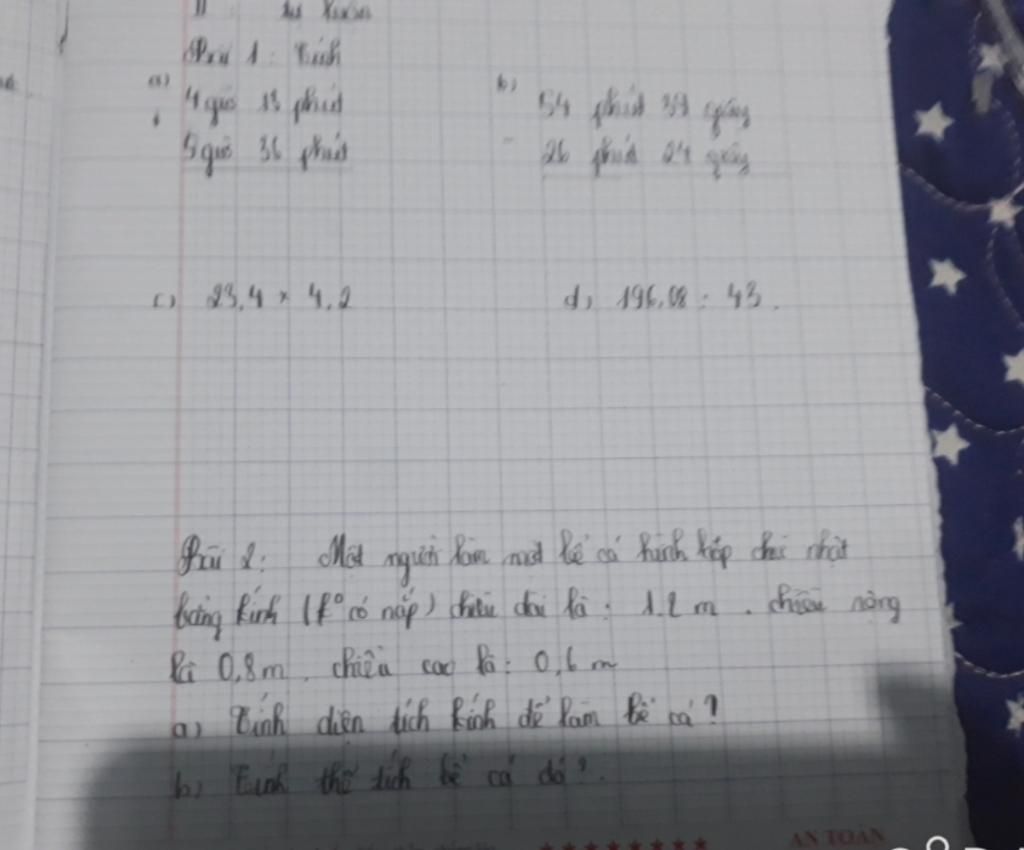 II: tự luận
Bài 1: Tính
a) 4 giờ 13 phút
+ 5 giờ 36 phút
b) 54 phút 39 giây
- 26 phút 24 giây
c) 23,4 x 4,2
d) 196,08 : 43.
Bài 2: Một người làm một bể cá hình hộp chữ nhật
bằng kính (k° có nắp) chiều dài là: 1.2 m. chiều rộng
là 0,8m. chiều cao là: 0,6 m
a) Tính diện tích kính để làm bể cá?
b) Tính thể tích bể cá đó?
AN TOÀN